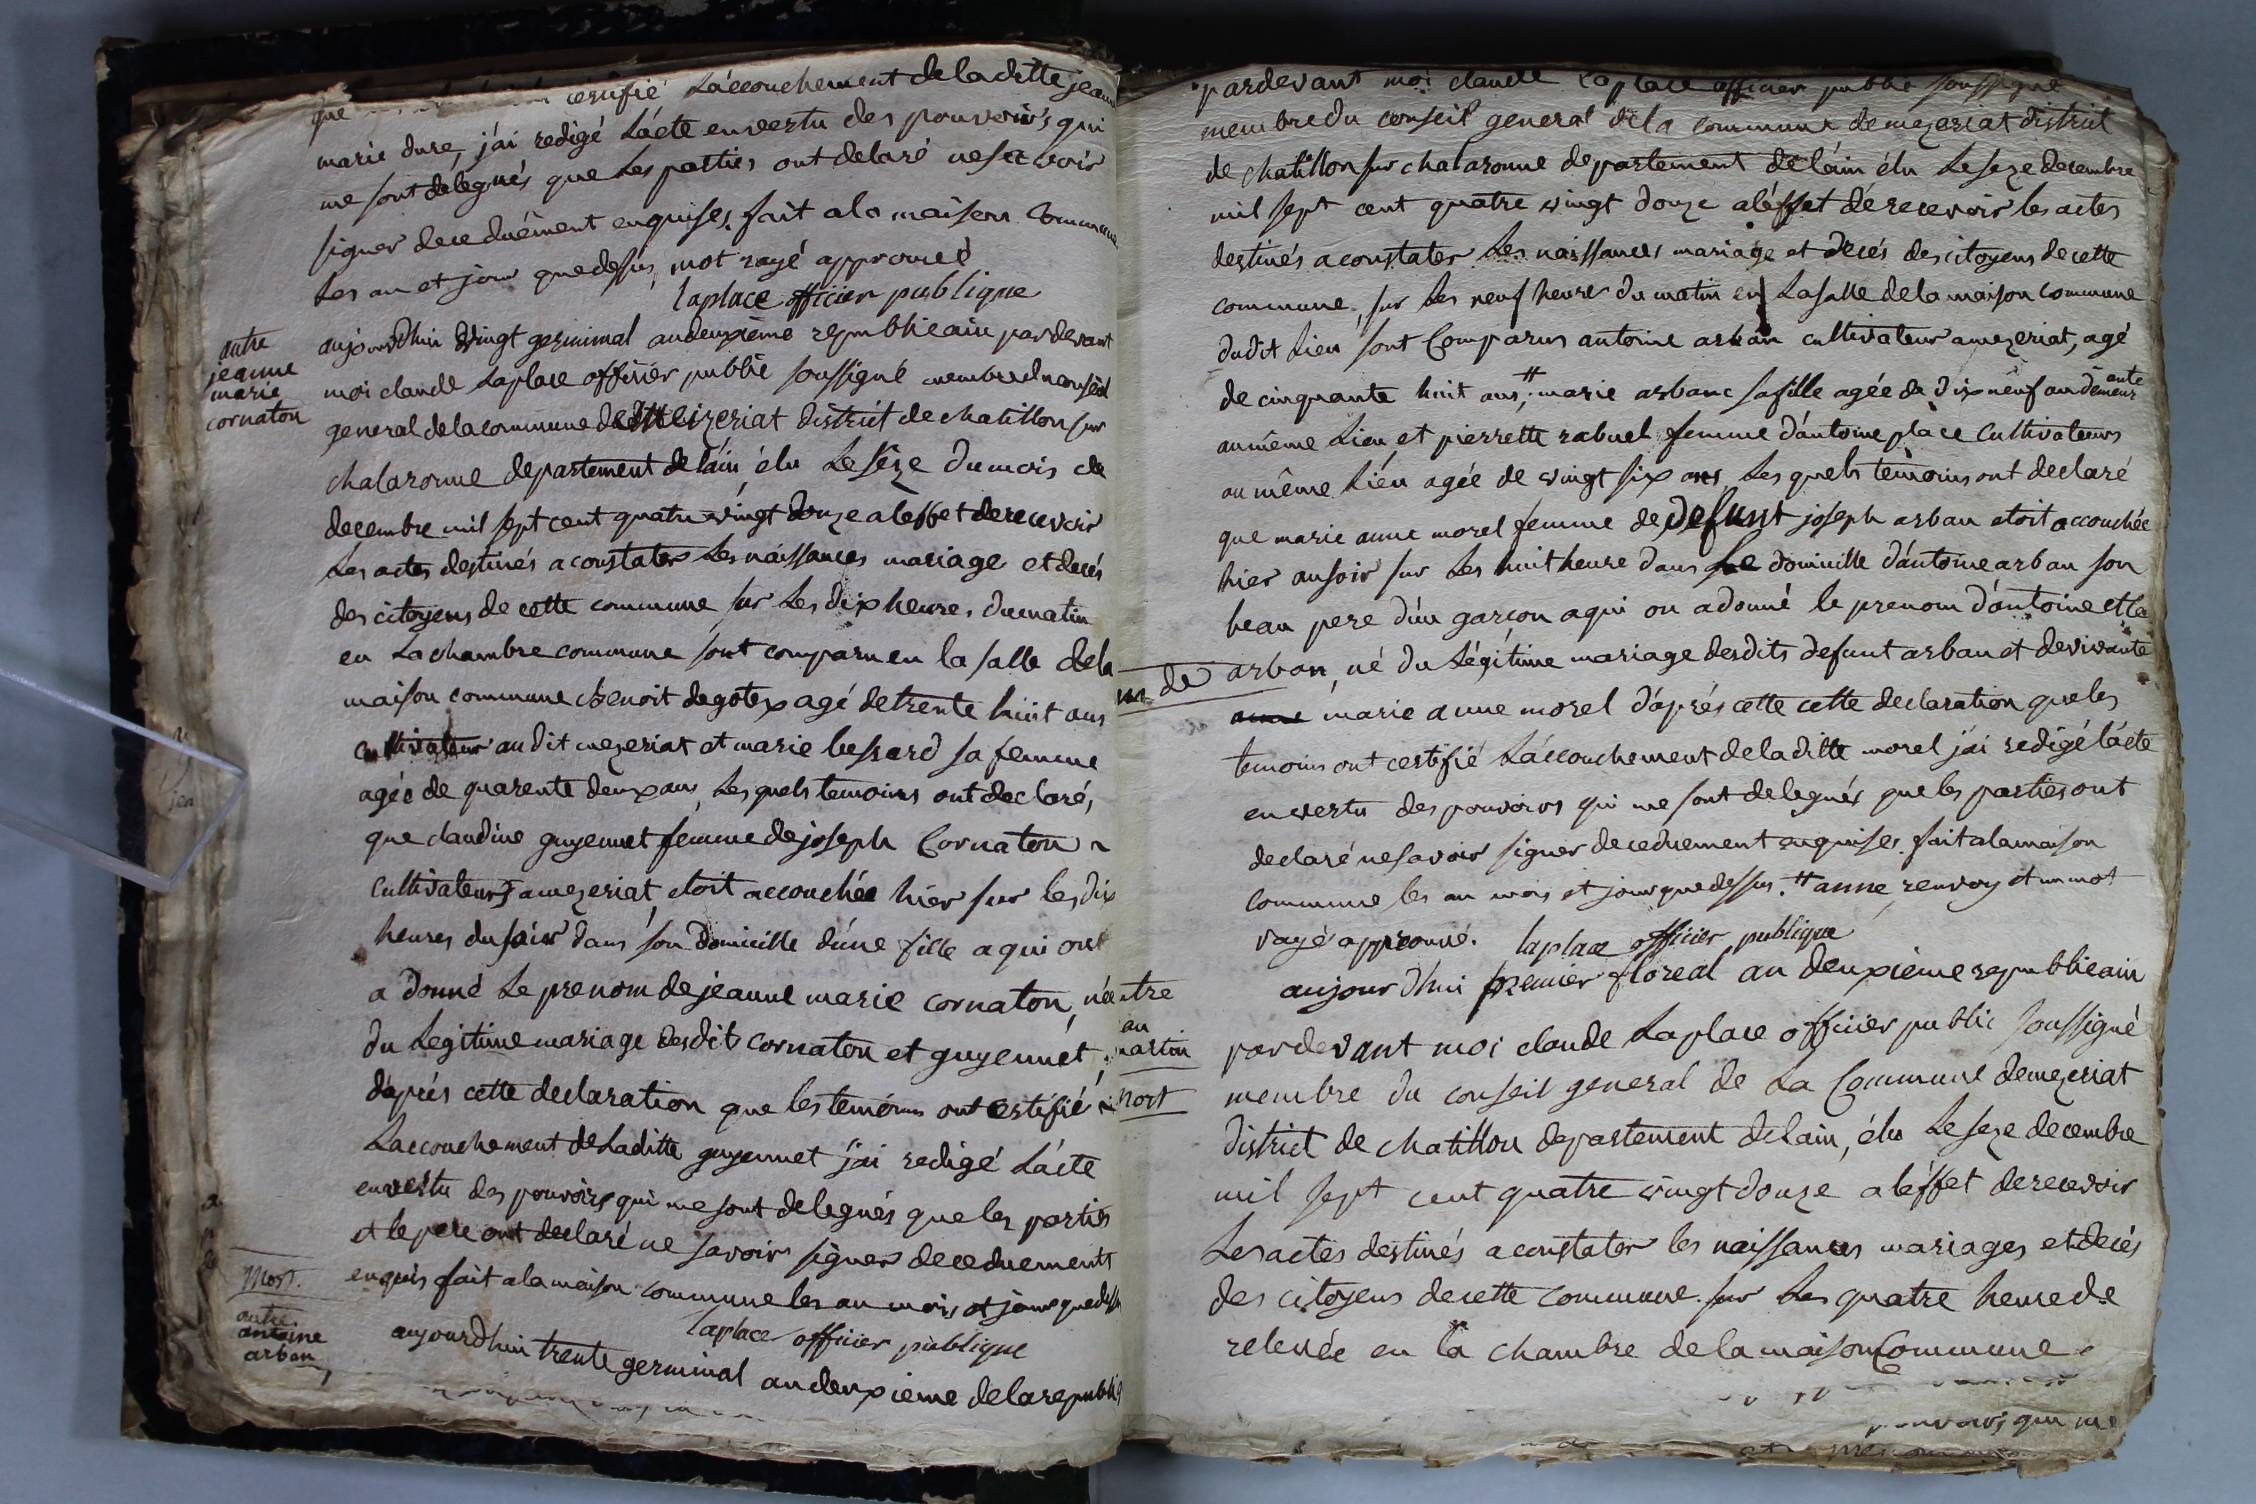 que certifié L'accouchement de la ditte jeanne
marie dure, j'ai redigé L'acte en vertu des pouvoirs qui
me sont delegués que Les parties ont delaré ne scavoir
signer de ce duëment enquises. fait a la maison Commune
Les an et jour que dessus, mot rayé approuvé
laplace officier publique
autre
jeanne
marie
cornaton
aujourdhui vingt germinal an deuxième republicain par devant
moi claude Laplace officier public soussigné membre du conseil
general de la commune de Meizeriat district de chatillon sur
chalaronne departement de l'ain élu Le sèze du mois de
decembre mil sept cent quatre vingt douze a l'effet de recevoir
Les actes destinés a constater Les naissances mariage et decés
des citoyens de cette commune, sur Les dix heures du matin
en La chambre commune sont comparu en la salle de la
maison commune Benoit degotex agé de trente huit ans
cultivateur au dit mezeriat et marie bessard sa femme
agée de quarente deux ans, Les quels temoins ont declaré,
que claudine guyennet femme de joseph Cornaton
Cultivateurs a mezeriat, etoit accouchée hier sur les dix
heures du soir dans son domicille d'une fille a qui ont
a donné Le prenom de jeanne marie cornaton, née
du Legitime mariage desdits cornaton et guyennet,
d'aprés cette declaration que les temoins ont certifié
L'accouchement de Laditte guyennet j'ai redigé L'acte
en vertu des pouvoirs qui me sont delegués que les parties
et le pere ont declaré ne savoir signer de ce duements
enquis fait a la maison commune les an mois et jour que dessus
laplace officier publique
Mort.
autre
antoine
arban
aujourdhui trente germinal an deuxieme de la republi
pardevant moi claude Laplace officier public soussigné
membre du conseil general de la commune de mezeriat district
de chatillon sur chalaronne departement de l'ain élu Le seze decembre
mil sept cent quatre vingt douze a l'éffet de recevoir les actes
destinés a constater Les naissances mariage et decés des citoyens de cette
commune, sur Les neuf heures du matin en La salle de la maison commune
dudit Lieu sont Comparus antoine arban cultivateur a mezeriat, agé
de cinquante huit ans, # marie arbanc sa fille agée de dix neuf an demeurente
au même Lieu, et pierrette rabuel femme d'antoine place Cultivateurs
au même Liéu agée de vingt six ans Les quels temoins ont declaré
que marie anne morel femme de defunt joseph arban etoit accouchée
hier au soir sur Les huit heure dans Le domicille d'antoine arban son
beau pere d'un garçon a qui on a donné le prenom d'antoine et la
de arban, né du Légitime mariage desdits defunt arban et de vivante
anne marie anne morel d'aprés cette cette declaration que les
temoins ont certifié L'accouchement de la ditte morel j'ai redigé l'acte
en vertu des pouvoirs qui me sont delegués que les parties ont
declaré ne savoir signer de ce duement enquises. fait a la maison
commune les an mois et jour que dessus. # anne, renvoy et un mot
rayé approuvé. laplace officier publique
aujourdhui premier floreal an deuxième republicain
autre
marton
mort
par devant moi claude Laplace officier public soussigné
membre du conseil general de La Commune de mezeriat
district de chatillon departement de lain, élu Le seze decembre
mil sept cent quatre vingt douze a l'éffet de recevoir
Les actes destinés a constater les naissances mariages et decés
des citoyens de cette commune. sur Les quatre heure de
relevée en la chambre de la maison Commune
pouvoirs qui me